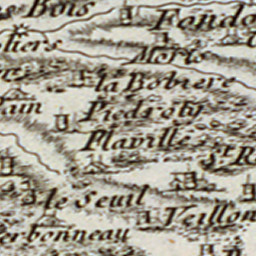 Bois
Fando
oliers
Morts
la Bobiere
ain
Plaville
St R
le Seuil
Veillon
erbonneau